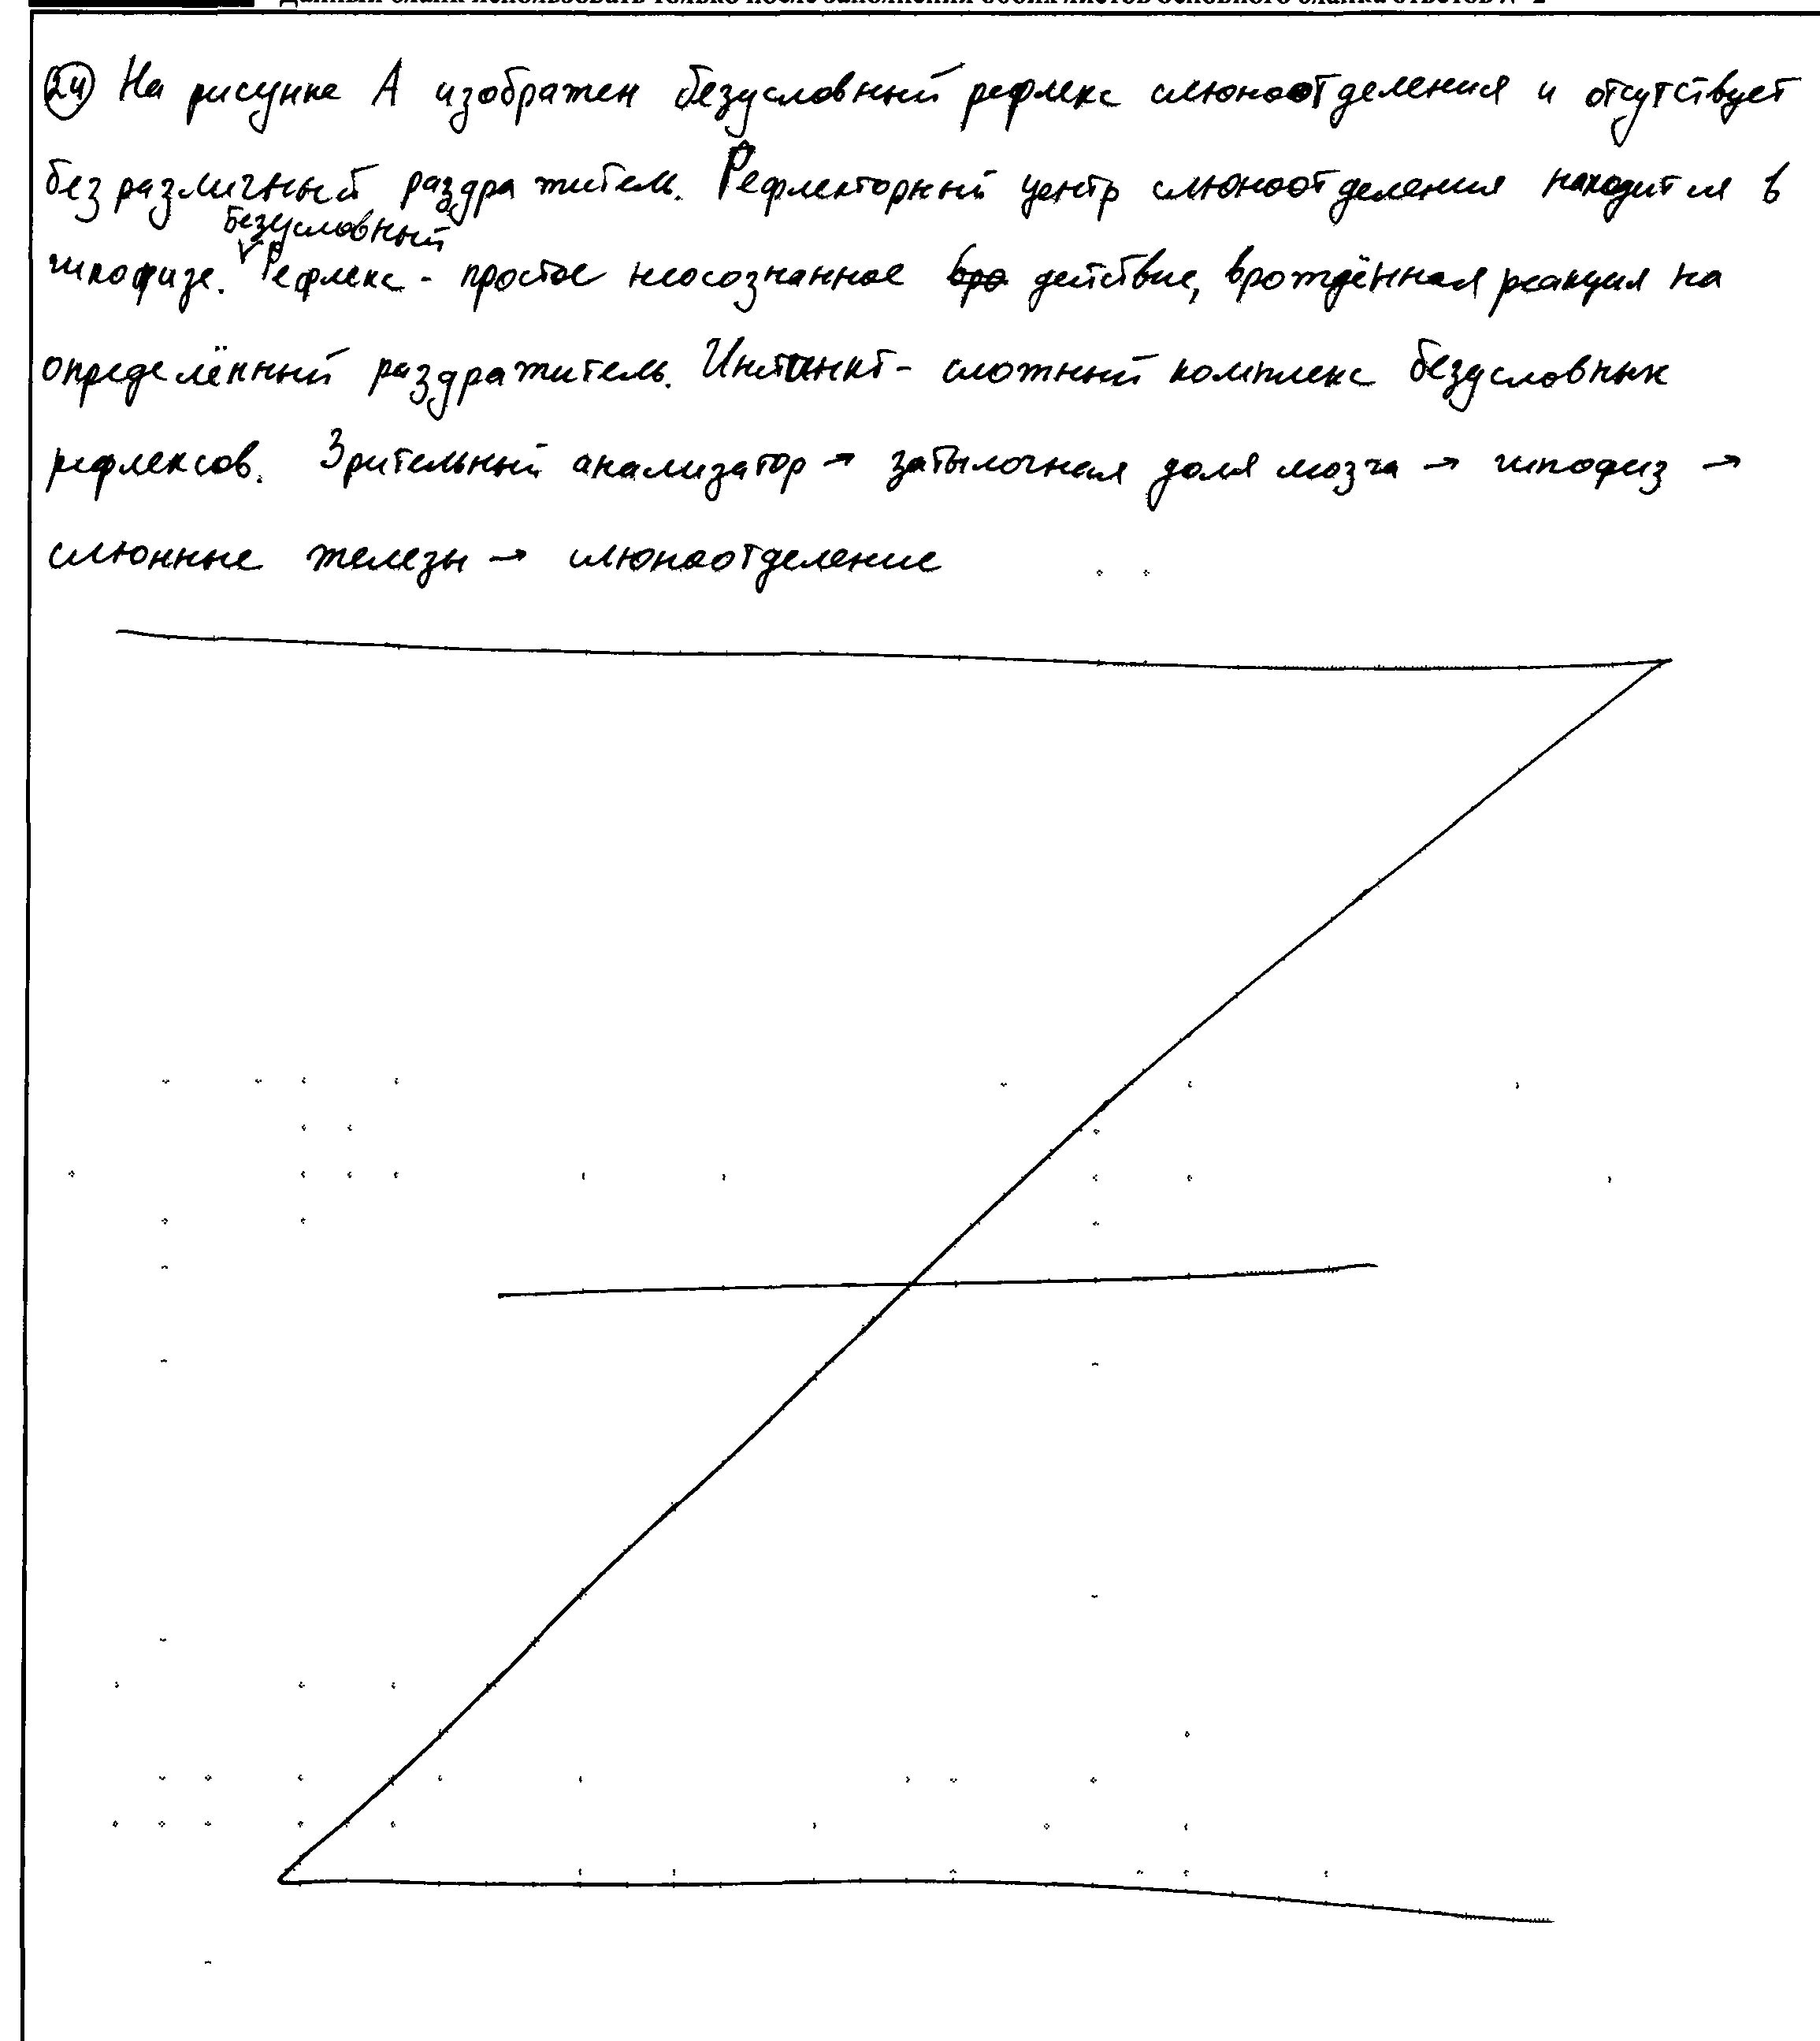 Данный бланк использовать только после заполнения обоих листов основного бланка ответов № 2
24 На рисунке А изображен безусловный рефлекс слюноотделения и отсутствует
безразличный раздражитель. Рефлекторный центр слюноотделения находится в
безусловный
гипофизе. Рефлекс - простое неосознанное вро действие, врождённая реакция на
определённый раздражитель. Инстинкт - сложный комплекс безусловных
рефлексов. Зрительный анализатор → затылочная доля мозга → гипофиз →
слюнные железы → слюноотделение